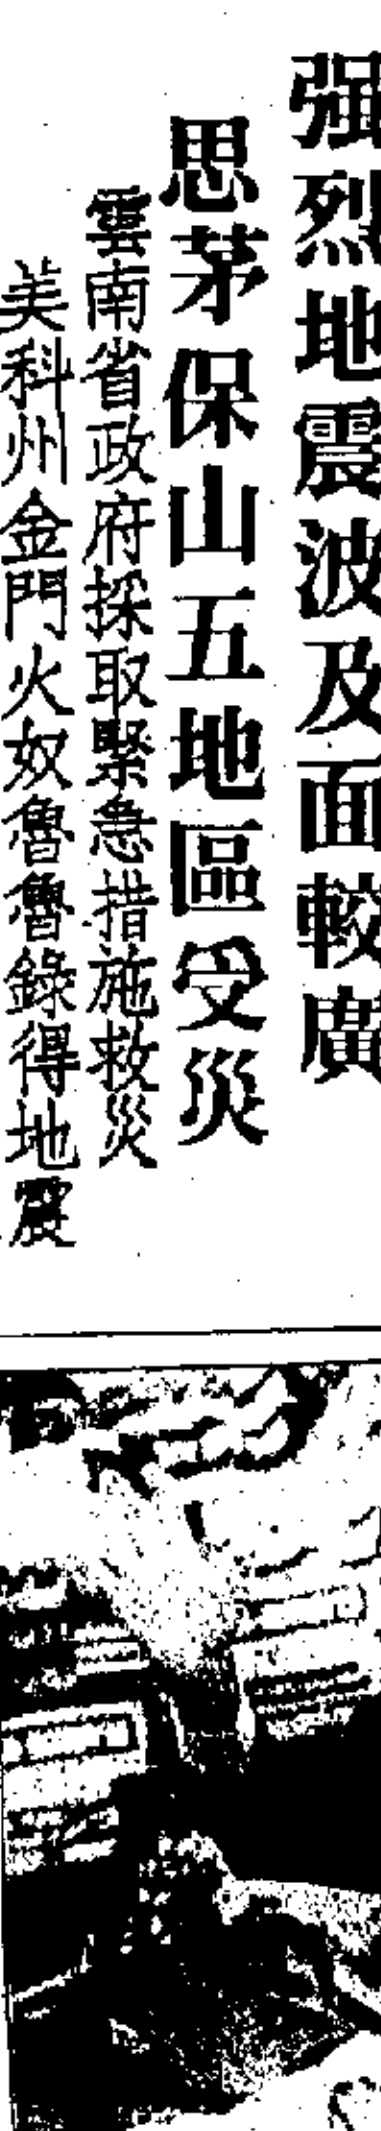 强烈地震波及面較廣
思茅保山五地區受災
雲南省政府採取緊急措施救災
美科州金門火奴魯魯錄得地震